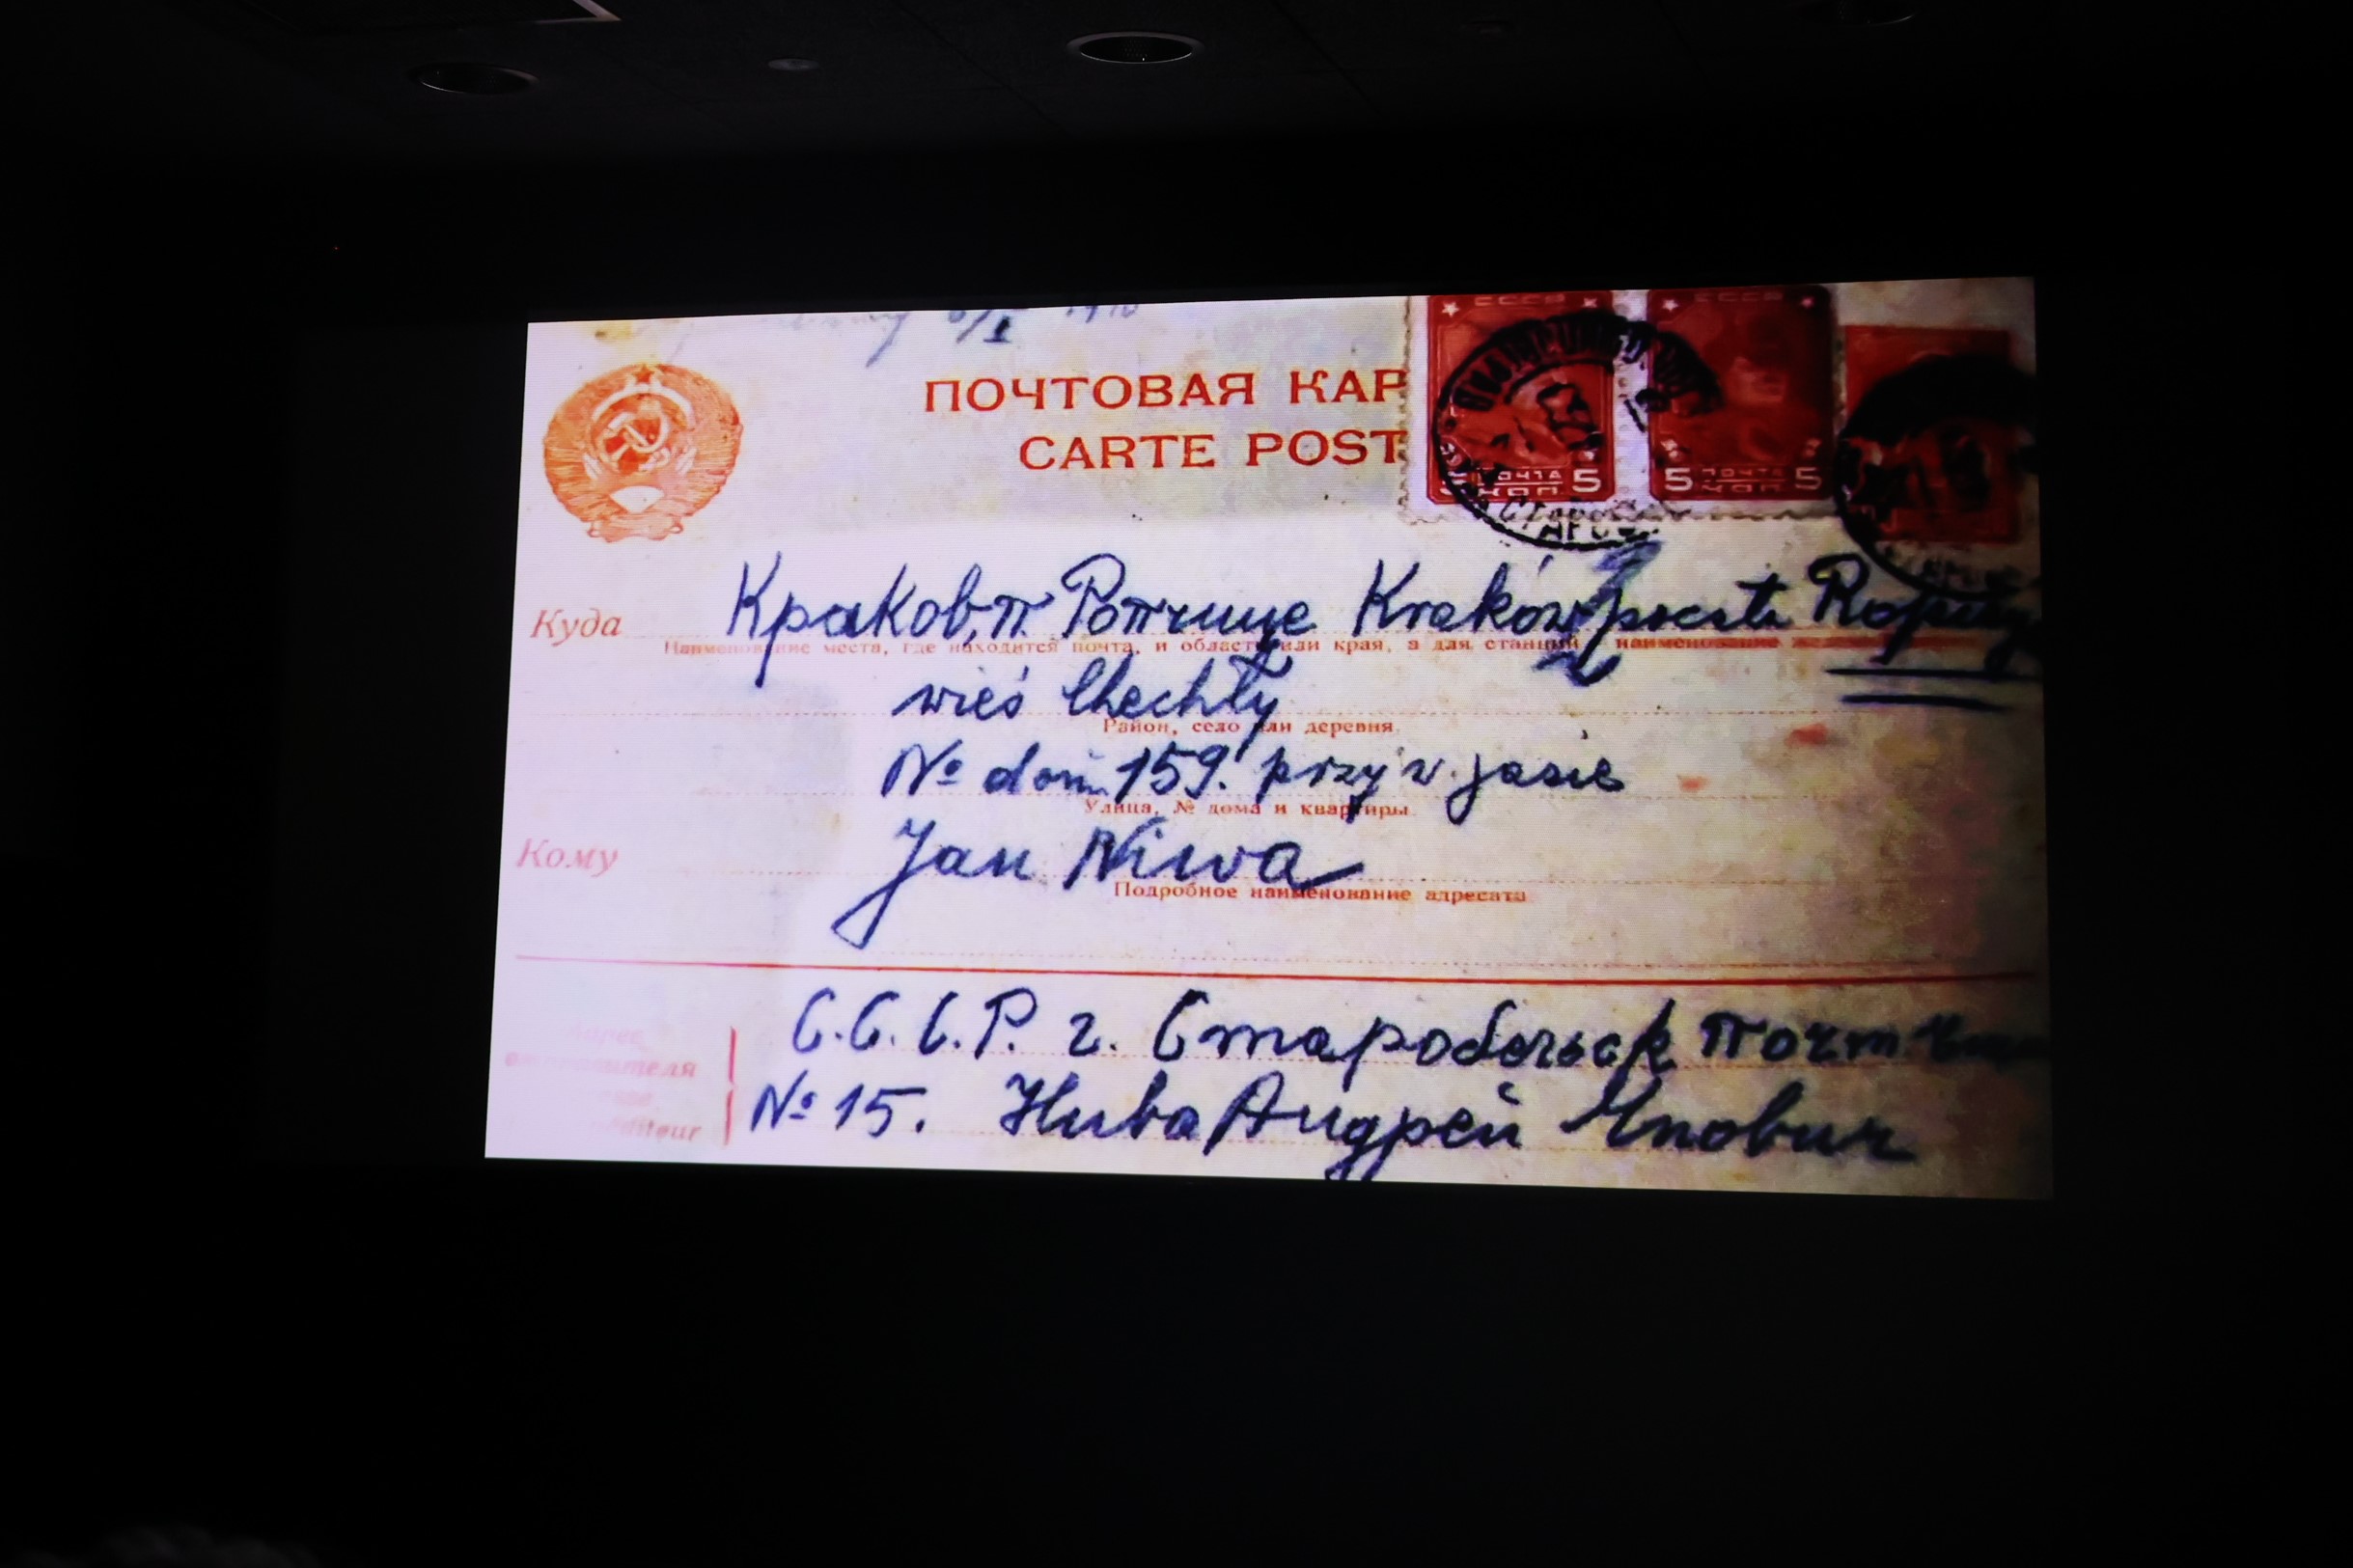 6/I
ПОЧТОВАЯ КАР
CARTE POST
СССР СССР
5 ПОЧТА КОП 5 5 ПОЧТА КОП 5
Куда Краков, п. Ропчице Kraków poczta
Наименование места, где находится почта, и области или края, а для станций наименование
wieś Chechły
Район, село или деревня
№ dom. 159. przy
Улица, № дома и квартиры
Кому Jan Niwa
Подробное наименование адресата
С.С.С.Р. г. Старобельск Почт.
№ 15. Нива Андрей Янович